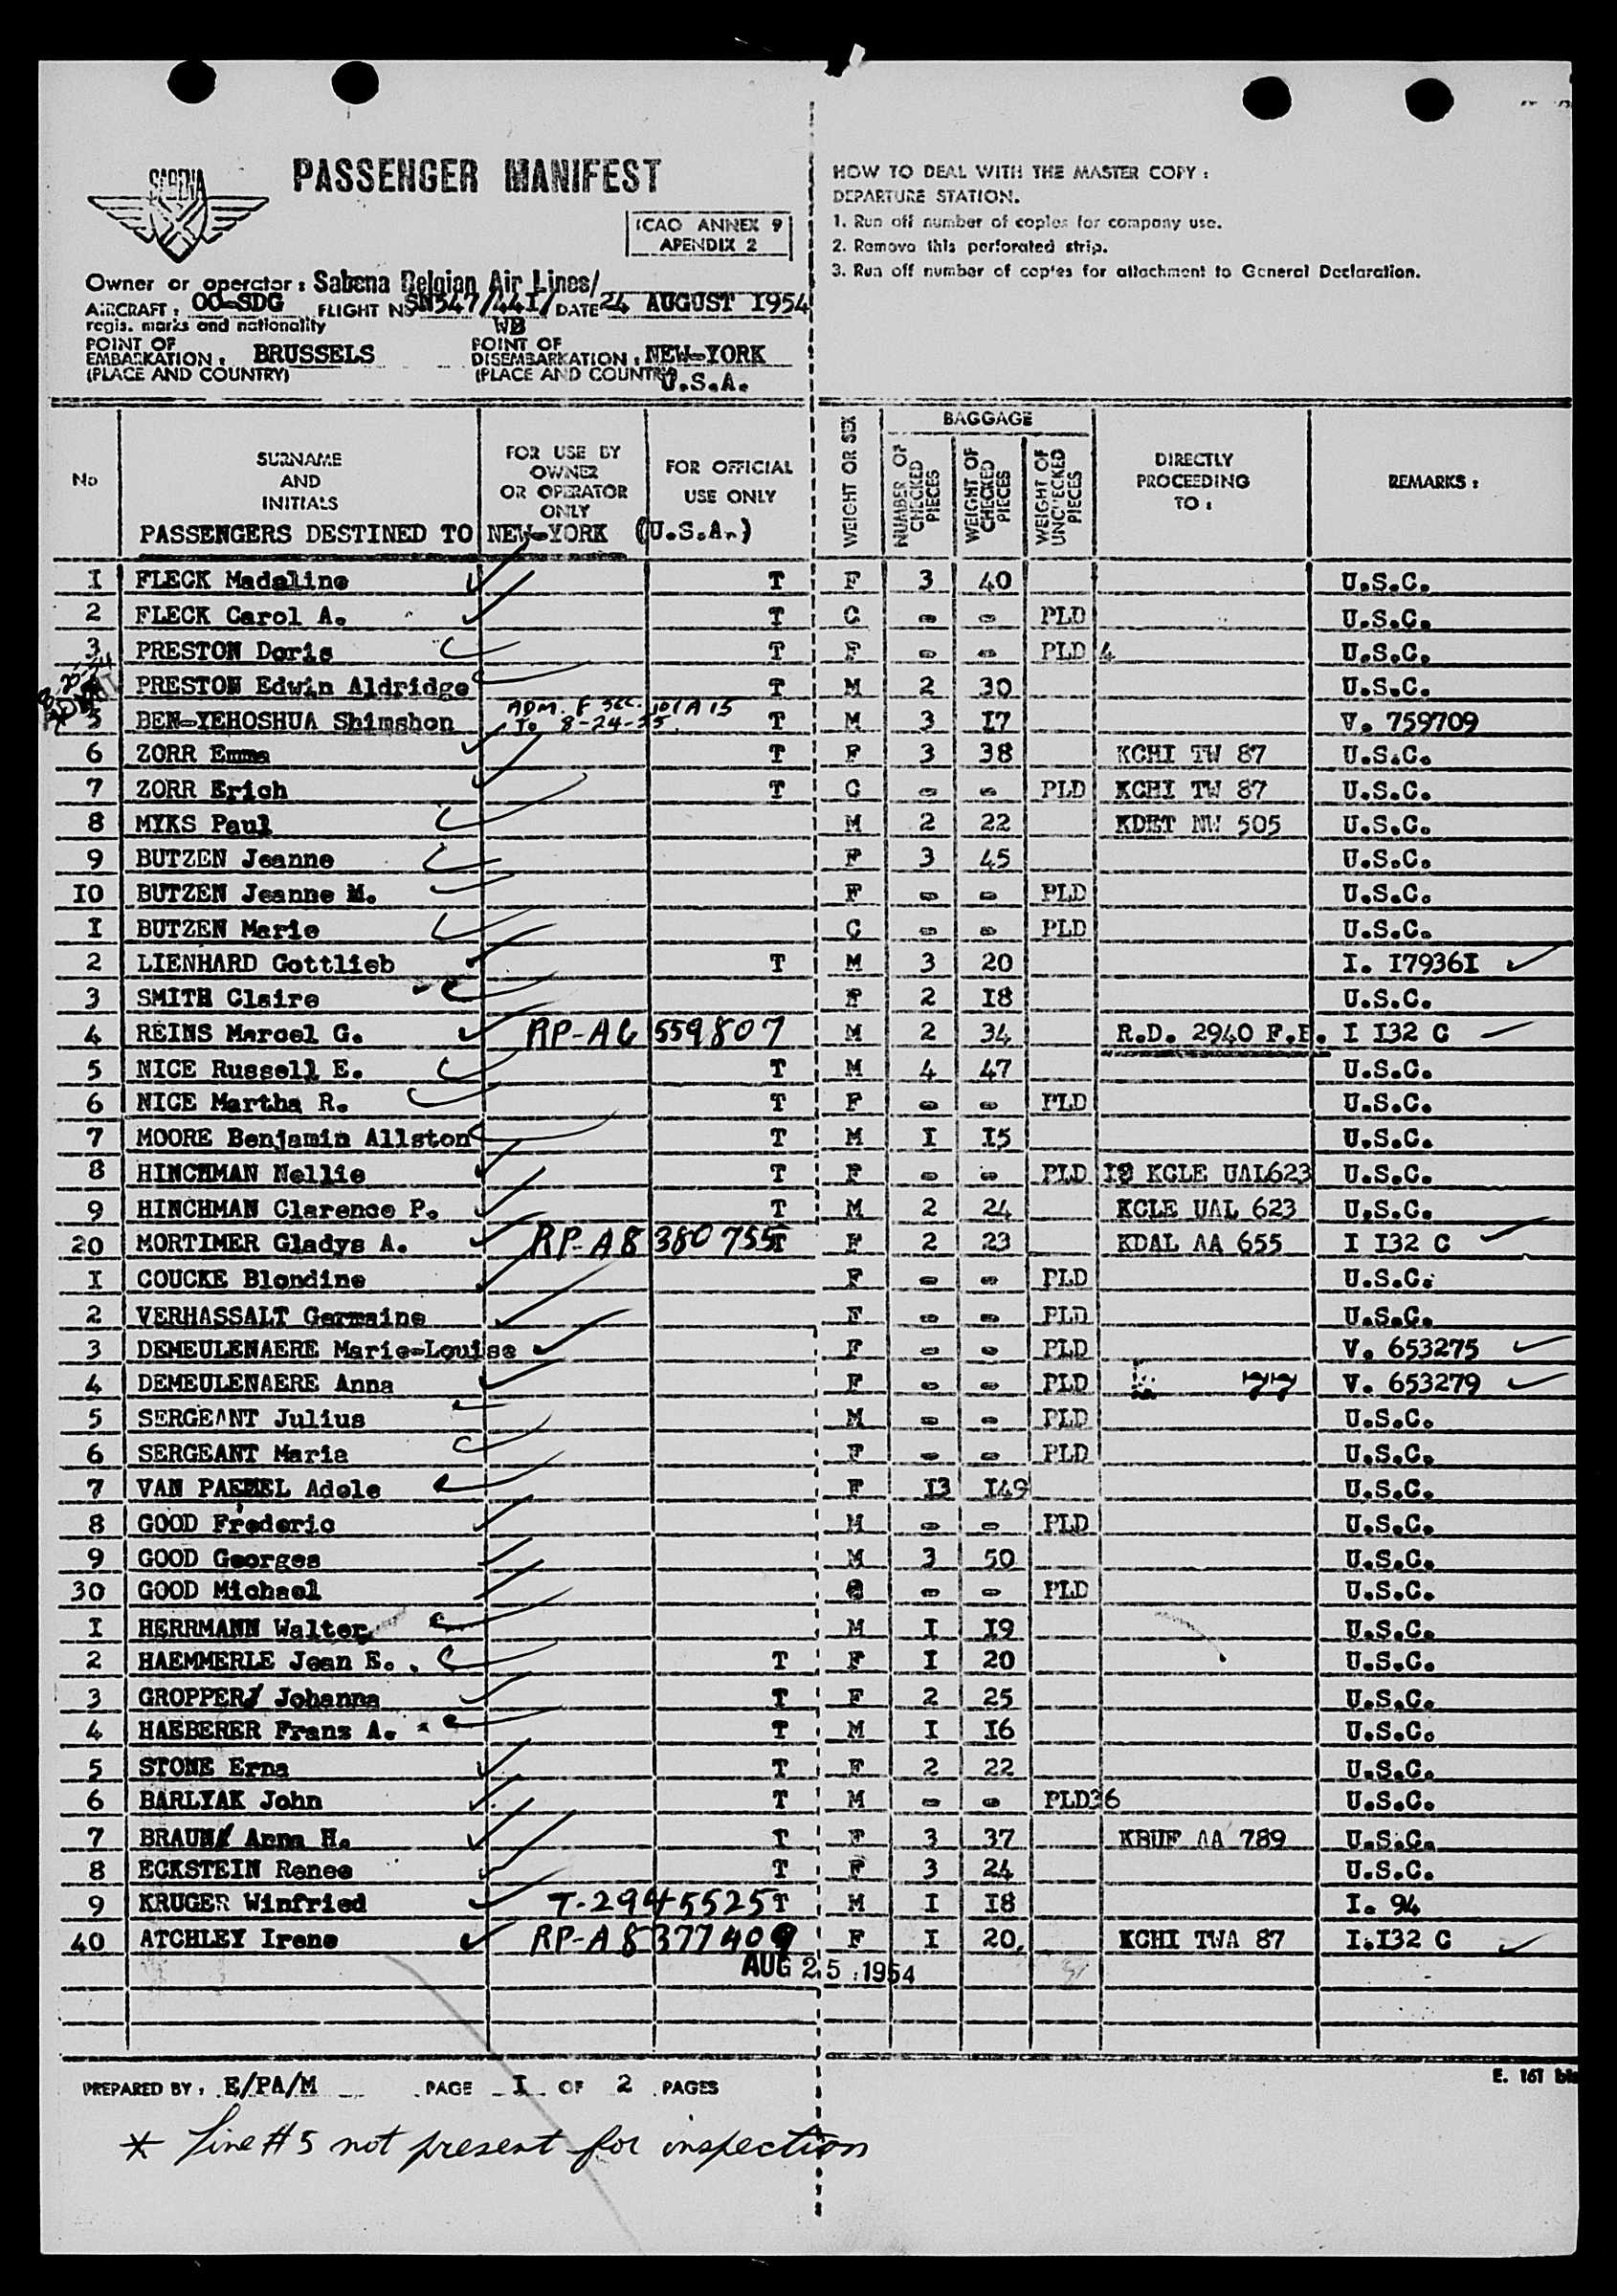 SABENA
PASSENGER MANIFEST
ICAO ANNEX 9
APENDIX 2
Owner or operator : Sabena Belgian Air Lines/
AIRCRAFT : OO-SDG FLIGHT No SN547/44I/ DATE 24 AUGUST I954
regis. marks and nationality WB
POINT OF EMBARKATION : BRUSSELS POINT OF DISEMBARKATION : NEW-YORK
(PLACE AND COUNTRY) (PLACE AND COUNTRY) U.S.A.
HOW TO DEAL WITH THE MASTER COPY :
DEPARTURE STATION.
1. Run off number of copies for company use.
2. Remove this perforated strip.
3. Run off number of copies for attachment to General Declaration.
No SURNAME AND INITIALS FOR USE BY OWNER OR OPERATOR ONLY FOR OFFICIAL USE ONLY WEIGHT OR SEX BAGGAGE NUMBER OF CHECKED PIECES WEIGHT OF CHECKED PIECES WEIGHT OF UNC'ECKED PIECES DIRECTLY PROCEEDING TO : REMARKS :
PASSENGERS DESTINED TO NEW-YORK (U.S.A.)
I FLECK Madeline T F 3 40 U.S.C.
2 FLECK Carol A. T C - - PLD U.S.C.
3 PRESTON Doris T F - - PLD 4 U.S.C.
PRESTON Edwin Aldridge T M 2 30 U.S.C.
ADM. F SEC. 101A15
5 BEN-YEHOSHUA Shimshon To 8-24-55 T M 3 I7 V. 759709
6 ZORR Emma T F 3 38 KCHI TW 87 U.S.C.
7 ZORR Erich T C - - PLD KCHI TW 87 U.S.C.
8 MYKS Paul M 2 22 KDET NW 505 U.S.C.
9 BUTZEN Jeanne F 3 45 U.S.C.
IO BUTZEN Jeanne M. F - - PLD U.S.C.
I BUTZEN Marie C - - PLD U.S.C.
2 LIENHARD Gottlieb T M 3 20 I. I7936I
3 SMITH Claire F 2 I8 U.S.C.
4 REINS Marcel G. RP-A6 559807 M 2 34 R.D. 2940 F.B. I I32 C
5 NICE Russell E. T M 4 47 U.S.C.
6 NICE Martha R. T F - - PLD U.S.C.
7 MOORE Benjamin Allston T M I I5 U.S.C.
8 HINCHMAN Nellie T F - - PLD I8 KCLE UAL623 U.S.C.
9 HINCHMAN Clarence P. T M 2 24 KCLE UAL 623 U.S.C.
20 MORTIMER Gladys A. RP-A8 380 755 T F 2 23 KDAL AA 655 I I32 C
I COUCKE Blondine F - - PLD U.S.C.
2 VERHASSALT Germaine F - - PLD U.S.C.
3 DEMEULENAERE Marie-Louise F - - PLD V. 653275
4 DEMEULENAERE Anna F - - PLD 77 V. 653279
5 SERGEANT Julius M - - PLD U.S.C.
6 SERGEANT Maria F - - PLD U.S.C.
7 VAN PAEMEL Adele F I3 I49 U.S.C.
8 GOOD Frederic M - - PLD U.S.C.
9 GOOD Georges M 3 50 U.S.C.
30 GOOD Michael C - - PLD U.S.C.
I HERRMANN Walter M I I9 U.S.C.
2 HAEMMERLE Jean E. T F I 20 U.S.C.
3 GROPPER Johanna T F 2 25 U.S.C.
4 HAEBERER Franz A. T M I I6 U.S.C.
5 STONE Erna T F 2 22 U.S.C.
6 BARLYAK John T M - - PLD36 U.S.C.
7 BRAUN Anna H. T F 3 37 KBUF AA 789 U.S.C.
8 ECKSTEIN Renee T F 3 24 U.S.C.
9 KRUGER Winfried T-2945525 T M I I8 I. 94
40 ATCHLEY Irene RP-A8377409 F I 20 KCHI TWA 87 I.I32 C
AUG 25 1954
PREPARED BY : E/PA/M PAGE I OF 2 PAGES
E. 161 bis
* Line #5 not present for inspection